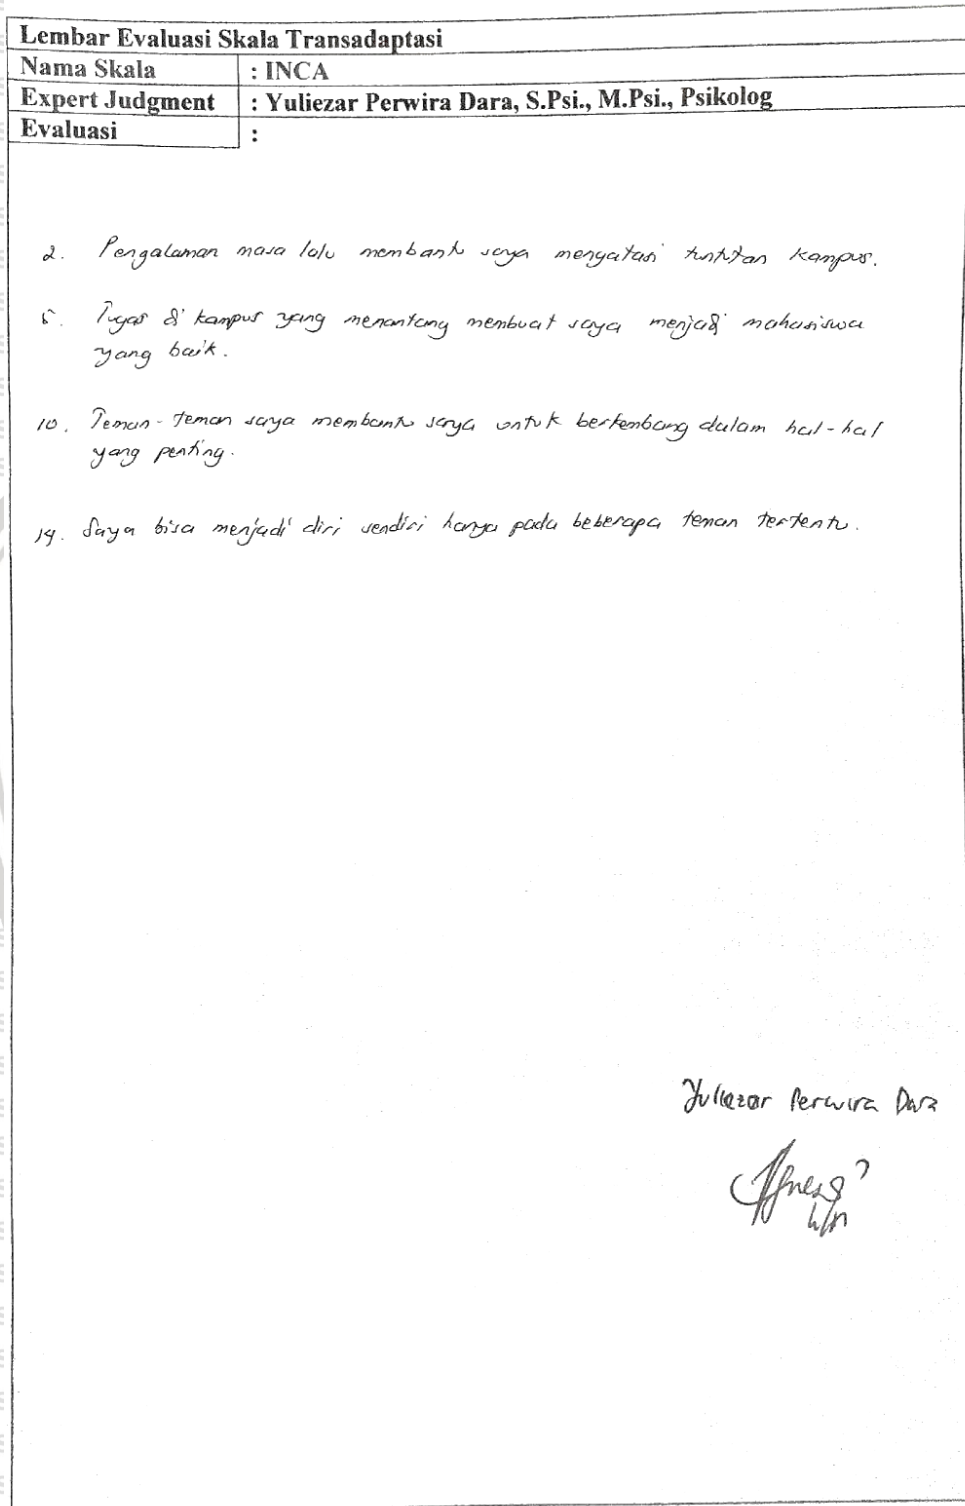 Lembar Evaluasi Skala Transadaptasi
Nama Skala : INCA
Expert Judgment : Yuliezar Perwira Dara, S.Psi., M.Psi., Psikolog
Evaluasi :
2. Pengalaman masa lalu membantu saya mengatasi tuntutan kampus.
5. Tugas di kampus yang menantang membuat saya menjadi mahasiswa
yang baik.
10. Teman-teman saya membantu saya untuk berkembang dalam hal-hal
yang penting.
14. Saya bisa menjadi diri sendiri hanya pada beberapa teman tertentu.
Yuliezar Perwira Dara